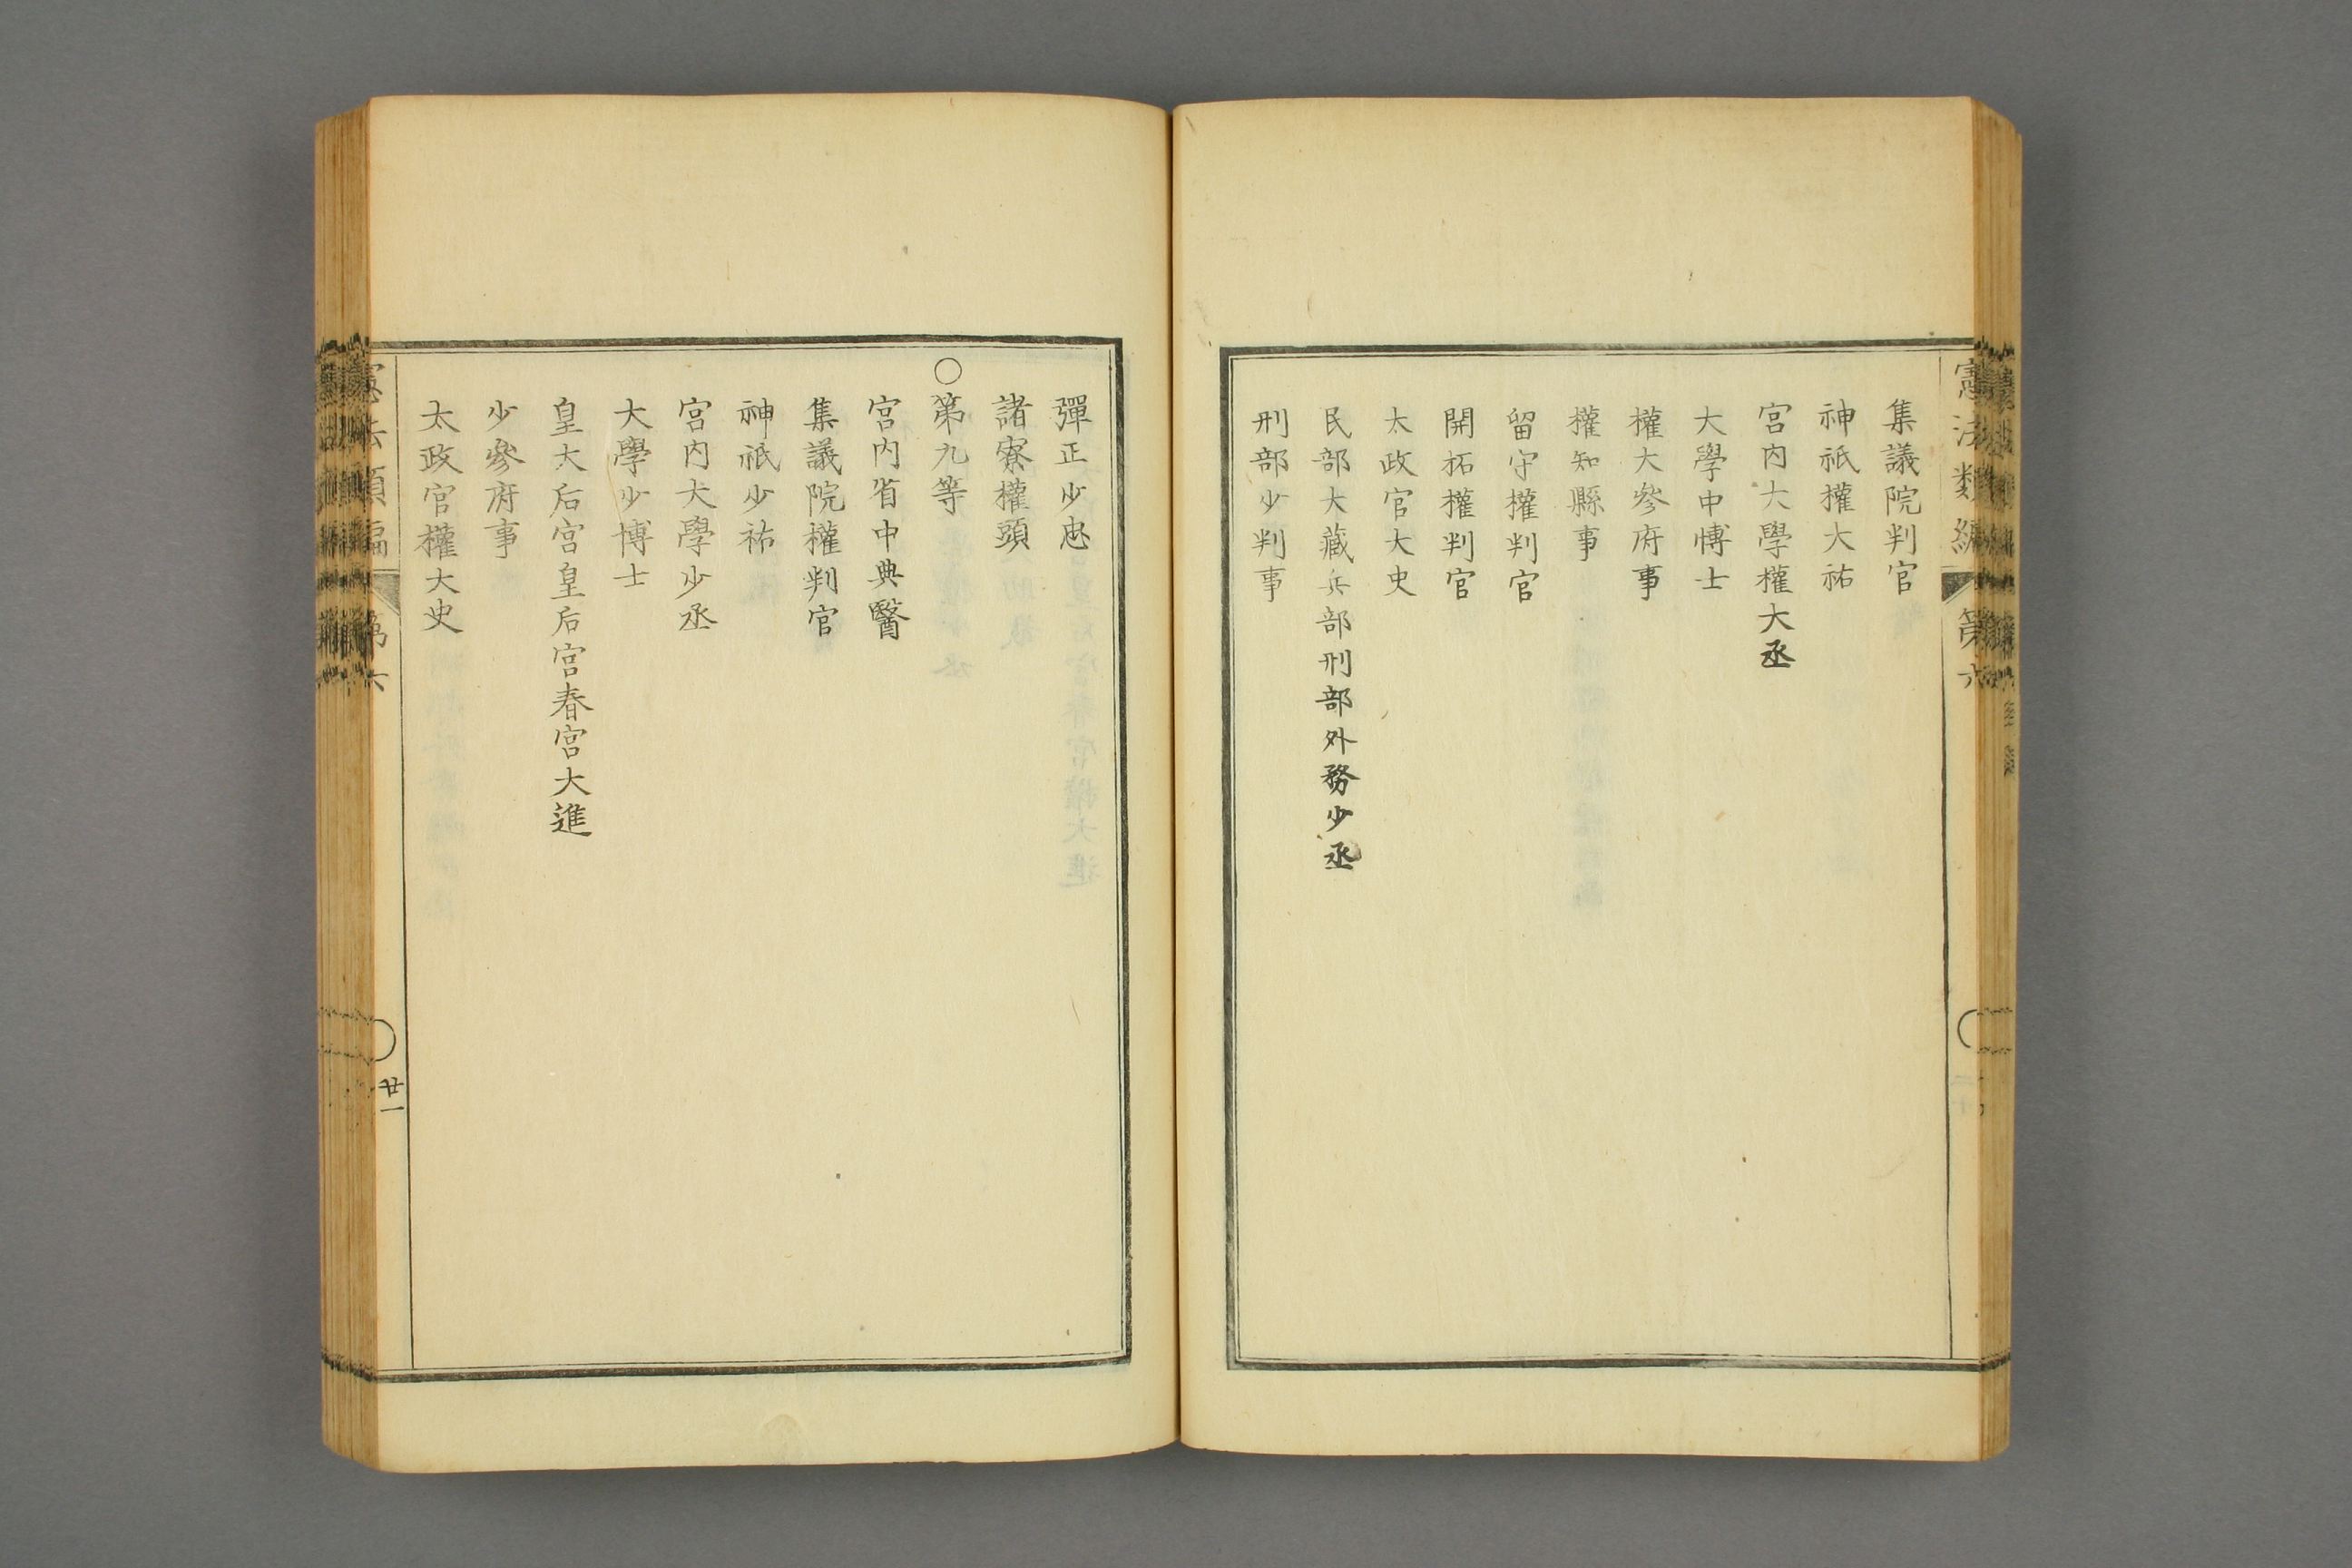 憲法類編 第六
集議院判官
神祇權大祐
宮内大學權大丞
大學中博士
權大參府事
權知縣事
留守權判官
開拓權判官
太政官大史
民部大藏兵部刑部外務少丞
刑部少判事
彈正少忠
諸寮權頭
○第九等
宮内省中典醫
集議院權判官
神祇少祐
宮内大學少丞
大學少博士
皇太后宮皇后宮春宮大進
少參府事
太政官權大史
憲法類編 第六 廿一